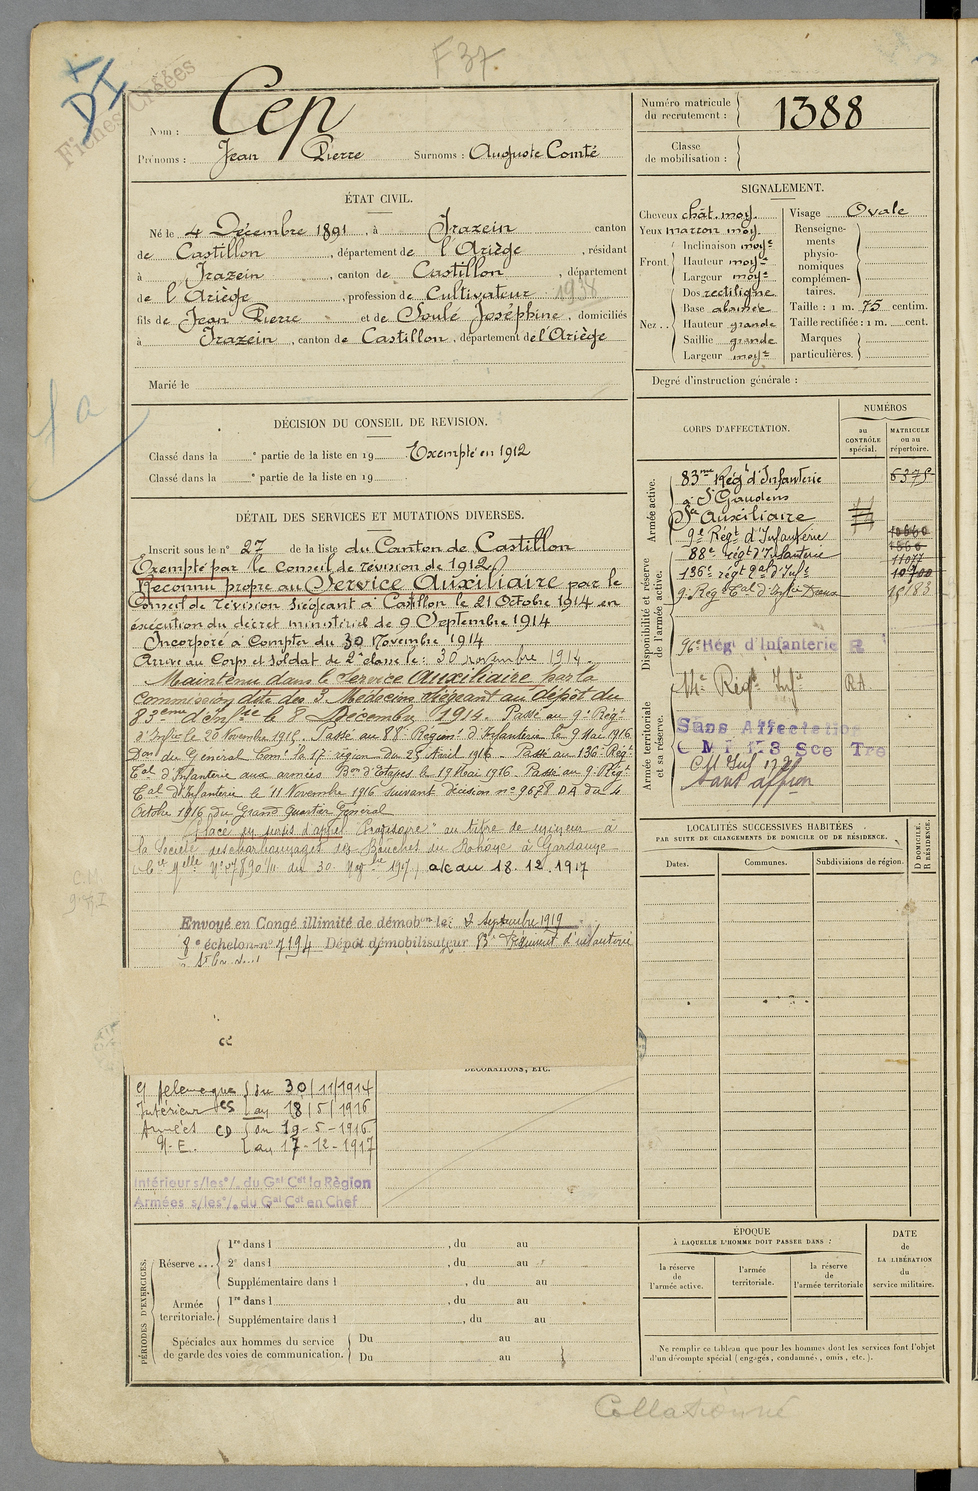 F 37.
Fiches Créées
DI
Nom : Cep
Prénoms : Jean Pierre Surnoms : Auguste Comté
Numéro matricule du recrutement : 1388
Classe de mobilisation :
ÉTAT CIVIL.
Né le 4 Décembre 1891, à Irazein canton
de Castillon, département de l'Ariège, résidant
à Irazein, canton de Castillon, département
de l'Ariège, profession de Cultivateur 1938
fils de Jean Pierre et de Soulé Joséphine, domiciliés
à Irazein, canton de Castillon, département de l'Ariège
Marié le
SIGNALEMENT.
Cheveux chât. moy.
Yeux marron moy.
Front. Inclinaison moyne
Hauteur moyne
Largeur moyne
Nez.. Dos rectiligne
Base abaissée
Hauteur grande
Saillie grande
Largeur moyne
Visage Ovale
Renseignements physionomiques complémentaires.
Taille : 1 m. 75 centim.
Taille rectifiée : 1 m. cent.
Marques particulières.
Degré d'instruction générale :
DÉCISION DU CONSEIL DE REVISION.
Classé dans la e partie de la liste en 19 Exempté en 1912
Classé dans la e partie de la liste en 19
DÉTAIL DES SERVICES ET MUTATIONS DIVERSES.
Inscrit sous le n° 27 de la liste du Canton de Castillon
Exempté par le Conseil de révision de 1912
Reconnu propre au Service Auxiliaire par le
Conseil de révision siégeant à Castillon le 21 Octobre 1914 en
éxécution du décret ministériel de 9 Septembre 1914
Incorporé à Compter du 30 Novembre 1914
Arrivé au Corps et soldat de 2e classe le : 30 novembre 1914
Maintenu dans le Service Auxiliaire par la
commission dite des 3 Médecins siégeant au dépôt du
83ème d'Infrie le 8 Décembre 1914. Passé au 9e Régt
d'Infrie le 20 Novembre 1915. Passé au 88e Régiment d'Infanterie le 9 Mai 1916
Don du Général Comt la 17e région du 25 Avril 1916. Passé au 136e Régt
Eal d'Infanterie aux armées Bon d'Etapes le 19 Mai 1916. Passé au 9e Régt
Eal d'Infanterie le 11 Novembre 1916 suivant décision n° 9678 DA du 4
Octobre 1916 du Grand Quartier Général
Placé en sursis d'appel Provisoire au titre de mineur à
la Société des charbonnages des Bouches du Rhône à Gardanne
a/c au 18.12.1917
Envoyé en Congé illimité de démobon le : 2 septembre 1919
8e échelon n° 7194 Dépôt démobilisateur 83e Régiment d'infanterie
CORPS D'AFFECTATION.
NUMÉROS
au CONTRÔLE spécial.
MATRICULE ou au répertoire.
Armée active.
83me Régt d'Infanterie 6375
à St Gaudens
Sce Auxiliaire
9e Régt d'Infanterie
88e régt d'Infanterie 11077
136e régt Eal d'Infie
9e Régt Eal d'Infie
Disponibilité et réserve de l'armée active.
96e Régt d'Infanterie R
14e Régt Infie RA
Armée territoriale et sa réserve.
Sans Affectation
C M I 173 Sce Tre
CM Inf 172
Sans affon
LOCALITÉS SUCCESSIVES HABITÉES
PAR SUITE DE CHANGEMENTS DE DOMICILE OU DE RÉSIDENCE.
Dates.
Communes.
Subdivisions de région.
D DOMICILE.
R RÉSIDENCE.
DÉCORATIONS, ETC.
cc
du 30/11/1914
Intérieur CS au 18/5/1916
Armées CD du 19-5-1916
au 17-12-1917
Intérieur s/les o/. du Gal Cdt la Région
Armées s/les o/. du Gal Cdt en Chef
PÉRIODES D'EXERCICES.
Réserve ... 1re dans l , du au
2e dans l , du au
Supplémentaire dans l , du au
Armée territoriale. 1re dans l , du au
Supplémentaire dans l , du au
Spéciales aux hommes du service de garde des voies de communication. Du au
Du au
ÉPOQUE
À LAQUELLE L'HOMME DOIT PASSER DANS :
la réserve de l'armée active.
l'armée territoriale.
la réserve de l'armée territoriale
DATE de LA LIBÉRATION du service militaire.
Ne remplir ce tableau que pour les hommes dont les services font l'objet
d'un décompte spécial (engagés, condamnés, omis, etc.).
Collationné